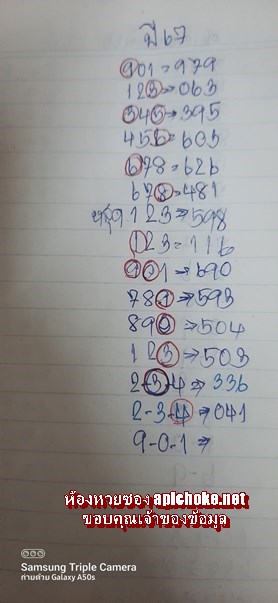 ปี 67
901=979
123=063
345=395
455=603
678=626
678=481
หยุด 123=598
123=116
901=690
789=593
890=504
123=503
2-3-4=336
2-3-4=041
9-0-1=
ห้องหวยซอง apichoke.net
ขอบคุณเจ้าของข้อมูล
Samsung Triple Camera
ถ่ายด้วย Galaxy A50s